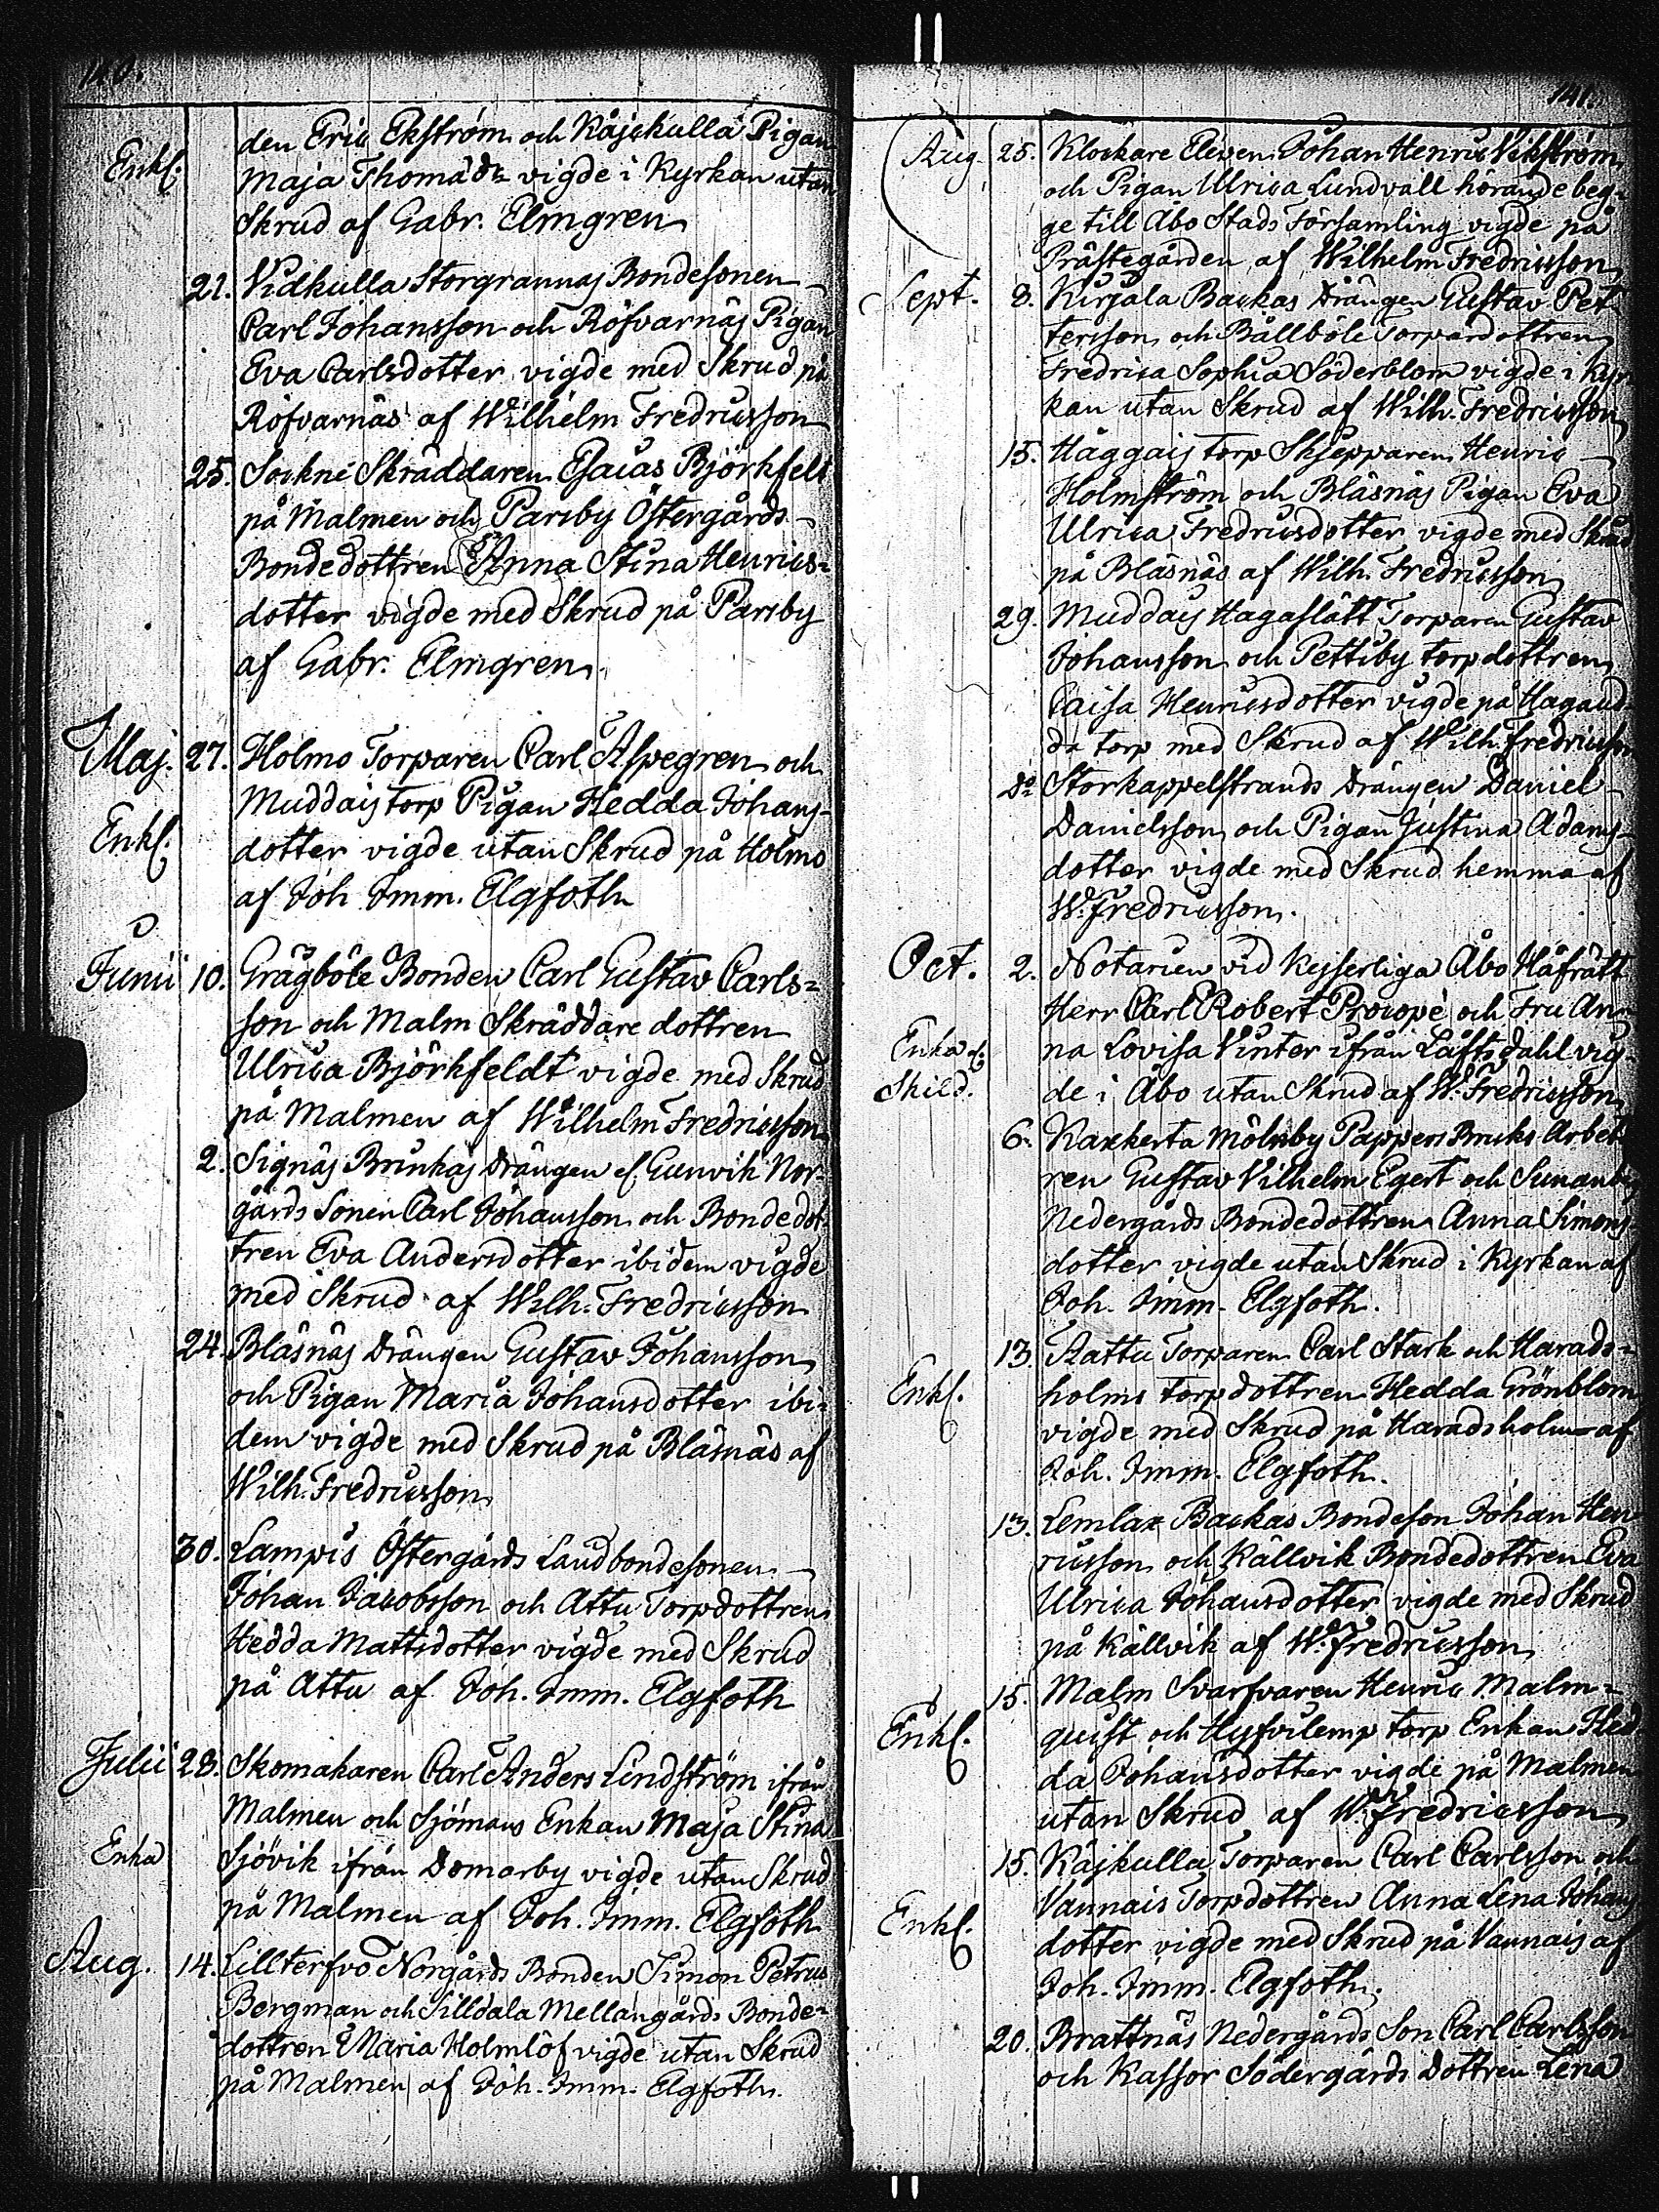 140.
den Eric Ekström och Kåjskulla Pigan
Enkl. Maja Thomæ Dr vigde i Kyrkan utan
Skrud af Gabr. Elmgren
21. Vidkulla Storgrannas Bondesonen
Carl Johansson och Röfvarnäs Pigan
Eva Carlsdotter vigde med Skrud på
Röfvarnäs af Wilhelm Fredricsson
25. Sockne Skräddaren Esaias Björkfelt
på Malmen och Parsby Östergårds
Bondedottren Anna Stina Henrics-
dotter vigde med Skrud på Parsby
af Gabr. Elmgren
Maj. 27. Holmo Torparen Carl Aspegren och
Muddais torp Pigan Hedda Johans-
Enkl. dotter vigde utan Skrud på Holmo
af Joh Imm. Elgfoth
Junii 10. Grägböle Bonden Carl Gustav Carls-
son och Malm Skräddare dottren
Ulrica Björkfeldt vigde med Skrud
på Malmen af Wilhelm Fredricsson
2. Signäs Brinkas Drängen el. Gunvik Nor-
gårds Sonen Carl Johansson och Bondedot-
tren Eva Andersdotter ibidem vigde
med Skrud af Wilh. Fredricsson
24. Bläsnäs Drängen Gustav Johansson
och Pigan Maria Johansdotter ibi-
dem vigde med Skrud på Bläsnäs af
Wilh. Fredricsson
30. Lampis Östergårds Landbondesonen
Johan Jacobsson och Attu Torpdottren
Hedda Mattsdotter vigde med Skrud
på Attu af Joh. Imm. Elgfoth
Julii 28. Skomakaren Carl Anders Lindström ifrån
Malmen och Sjömans Enkan Maja Stina
Enka Sjövik ifrån Domarby vigde utan Skrud
på Malmen af Joh. Imm. Elgfoth
Aug. 14. Lillterfvo Norgårds Bonden Simon Petrus
Bergman och Silldala Mellangårds Bonde-
dottren Maria Holmlöf vigde utan Skrud
på Malmen af Joh. Imm. Elgfoth.
141.
Aug. 25. Klockare Eleven Johan Henric Vikström
och Pigan Ulrica Lundvall hörande beg-
ge till Åbo Stads Församling vigde på
Prästegården af Wilhelm Fredricsson
Sept. 8. Kirjala Backas Drängen Gustav Pet-
tersson och Bållböle Torpardottren
Fredrica Sophia Söderblom vigde i Kyr-
kan utan Skrud af Wilh. Fredricsson
15. Häggais torp Skepparen Henric
Holmström och Bläsnäs Pigan Eva
Ulrica Fredricsdotter vigde med Skrud
på Bläsnäs af Wilh. Fredricsson
29. Muddais Hagaslätt Torparen Gustav
Johansson och Pettiby torpdottren
Caisa Henricsdotter vigde på Hagaud-
da torp med Skrud af Wilh. Fredricsson
Do Storkappelstrands Drängen Daniel
Danielsson och Pigan Justina Adams-
dotter vigde med Skrud hemma af
W. Fredricsson.
Oct. 2. Notarien vid Kejserliga Åbo Håfrätt
Herr Carl Robert Procopé och Fru An-
Enka el. na Lovisa Vinter ifrån Låftsdahl vig-
Skild. de i Åbo utan Skrud af W. Fredricsson
6. Kaxkerta Mölnby Pappers Bruks Arbeta
ren Gustav Vilhelm Egert och Sunanby
Nedergårds Bondedottren Anna Simons-
dotter vigde utan Skrud i Kyrkan af
Joh. Imm. Elgfoth.
13. Aattu Torparen Carl Stark och Harads-
Enkl. holms torpdottren Hedda Grönblom
vigde med Skrud på Haradsholm af
Joh. Imm. Elgfoth.
13. Lemlax Backas Bondeson Johan Hen-
ricsson och Källvik Bondedottren Eva
Ulrica Johansdotter vigde med Skrud
på Källvik af W. Fredricsson
15. Malm Svarfvaren Henric Malm-
Enkl. quist och Hyfvilemp torp Enkan Hed-
da Johansdotter vigde på Malmen
utan Skrud af W. Fredricsson
15. Käjkulla Torparen Carl Carlsson och
Enkl. Vannais Torpdottren Anna Lena Johans
dotter vigde med Skrud på Vannais af
Joh. Imm. Elgfoth.
20. Brattnäs Nedergårds Son Carl Carlsson
och Kassor Södergårds Dottren Lena